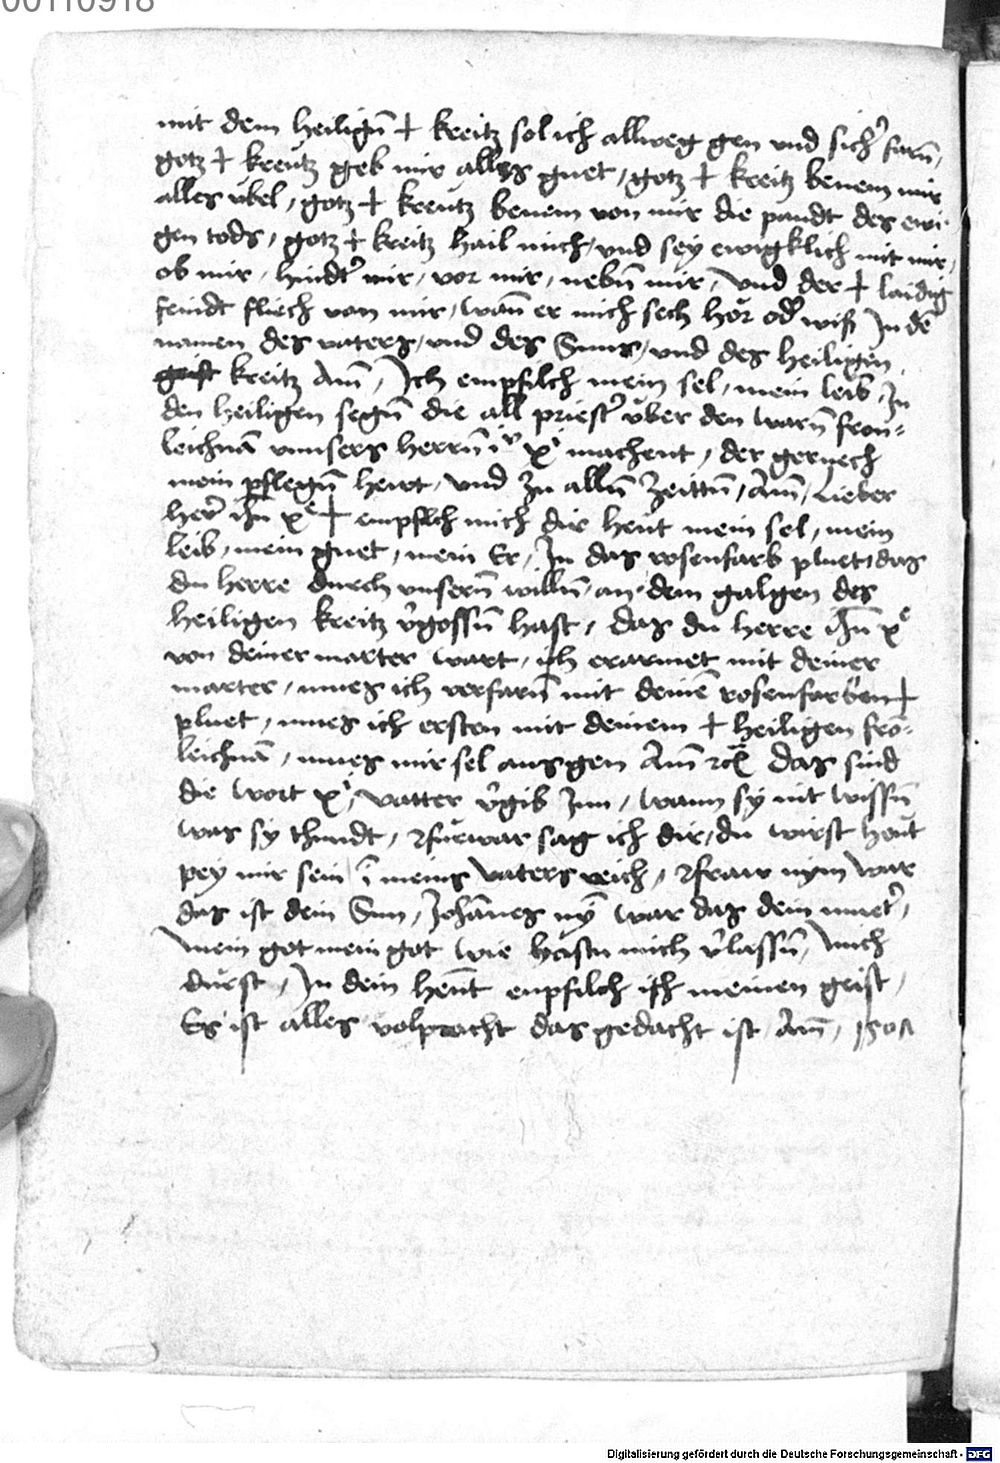 00110918
mit dem heiligñ + kreitz sol ich allweg gen und sich̾ farñ,
gotz + kreutz geb mir alles guet, gotz + kreitz benem mir
alles übel, gotz + kreutz benem von mir die pandt des ewi-
gen tods, gotz + kreitz hail mich, und sey ewigklich mit mir,
ob mir, hindt̾ mir, vor mir, nebñ mir, Und der + laidig
feindt fliech von mir, wañ er mich sech hör od̾ wiß In dē
namen des vaters, und des Suns, und des heiligen
geist kreitz Amñ, Ich empfilch mein sel, mein leib, In
den heiligen segñ die all priest̾ über den warñ fron-
leichnā unnsers herrñ machent, der geruech
mein pflegñ hewt, und zu allñ zeittñ, Amñ, Lieber
her̾ ihū xᵉ + empflch mich dir heut mein sel, mein
leib, mein guet, mein Er, In das rosenfarb pluet, das
du herre durch unserñ willñ an dem galgen des
heiligen kreitz v̾gossñ hast, das du herre ihū xᵉ
von deiner marter wart, ich erarmet mit deiner
marter, mues ich verfarñ mit deinē rosenfarben +
pluet, mues ich ersten mit deinem + heiligen frō-
leichnā, mues mir sel ausgen Amñ das sind
die wort xⁱ, Vatter v̾gib Inn, wann sy nit wissñ
was sy thundt, fürwar sag ich dir, du wirst heut
pey mir sein ī meins vaters reich, fraw nym war
das ist dein Sun, Johānes nȳ war das dein muet̾,
Mein got mein got wie hastu mich v̾lassñ, Mich
dürst, In dein hēnt enpfilch ich meinen geist,
Es ist alles volpracht das gedacht ist Amñ,
Digitalisierung gefördert durch die Deutsche Forschungsgemeinschaft - DFG